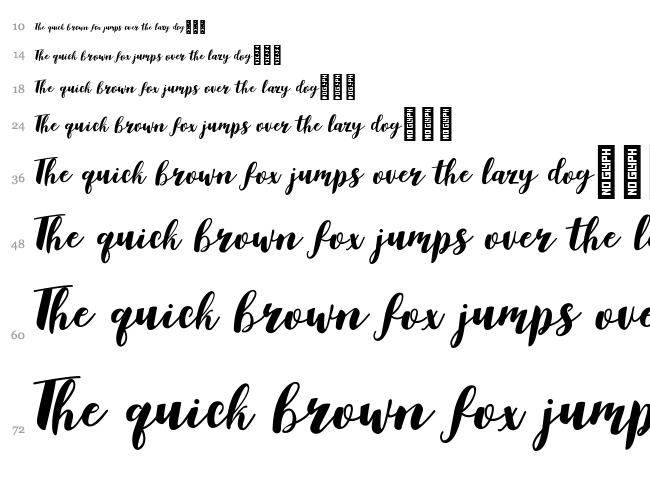 10 The quick brown fox jumps over the lazy dog NO GLYPH NO GLYPH NO GLYPH
14 The quick brown fox jumps over the lazy dog NO GLYPH NO GLYPH NO GLYPH
18 The quick brown fox jumps over the lazy dog NO GLYPH NO GLYPH NO GLYPH
24 The quick brown fox jumps over the lazy dog NO GLYPH NO GLYPH NO GLYPH
36 The quick brown fox jumps over the lazy dog NO GLYPH NO GLYPH
48 The quick brown fox jumps over the l
60 The quick brown fox jumps ove
72 The quick brown fox jump